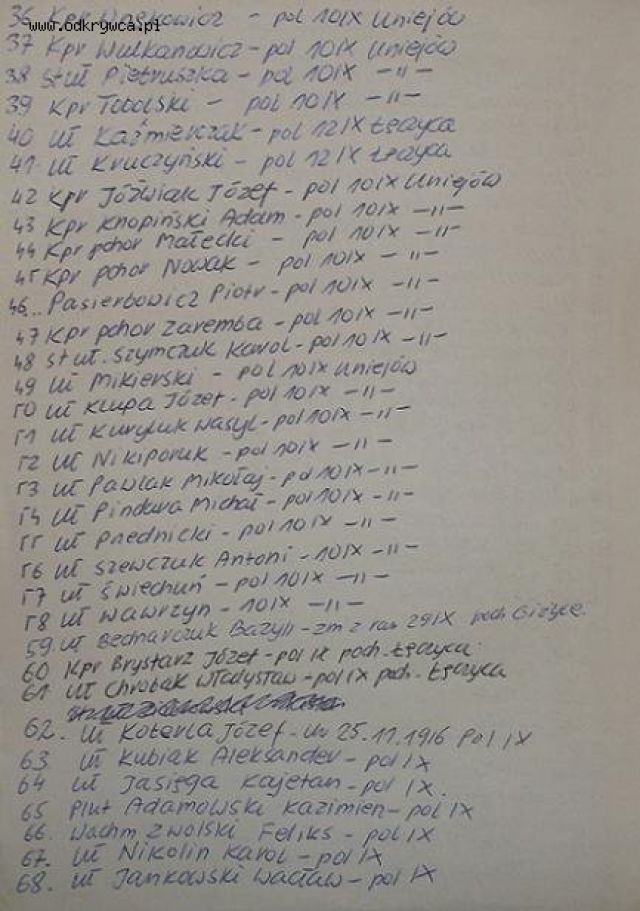 36 Kpr Wnękowicz - pol 10 IX Uniejów
www.odkrywca.pl
37 Kpr Wulkanowicz - pol 10 IX Uniejów
38 st uł Pietruszka - pol 10 IX -"-
39 Kpr Tobolski - pol 10 IX -"-
40 uł Kaźmierczak - pol 12 IX Łęczyca
41 uł Kruczyński - pol 12 IX Łęczyca
42 Kpr Jóźwiak Józef - pol 10 IX Uniejów
43 Kpr Knopiński Adam - pol 10 IX -"-
44 Kpr pchor Małecki - pol 10 IX -"-
45 Kpr pchor Nowak - pol 10 IX -"-
46.. Pasierbowicz Piotr - pol 10 IX -"-
47 Kpr pchor Zaremba - pol 10 IX -"-
48 st uł. Szymczuk Karol - pol 10 IX -"-
49 uł Mikierski - pol 10 IX Uniejów
50 uł Kłupa Józef - pol 10 IX -"-
51 uł Kuryluk Wasyl - pol 10 IX -"-
52 uł Nikiporuk - pol 10 IX -"-
53 uł Pawlak Mikołaj - pol 10 IX -"-
54 uł Pindura Michał - pol 10 IX -"-
55 uł Prednicki - pol 10 IX -"-
56 uł Szewczuk Antoni - 10 IX -"-
57 uł Świechuń - pol 10 IX -"-
58 uł Wawrzyn - 10 IX -"-
59. uł Bednarczuk Bazyli - zm z ran 29 IX poch Giżyce.
60 Kpr Brystarz Józef - pol IX poch. Łęczyca.
61 uł Chrobak Władysław - pol IX poch. Łęczyca
62. uł Koterla Józef - ur 25.11.1916 Pol IX
63 uł Kubiak Aleksander - pol IX
64 uł Jasięga Kajetan - pol IX.
65 Plut Adamowski Kazimierz - pol IX
66. Wachm Zwolski Feliks - pol IX
67. uł Nikolin Karol - pol IX
68. uł Jankowski Wacław - pol IX